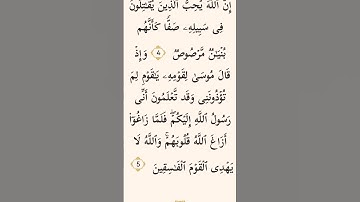 إِنَّ ٱللَّهَ يُحِبُّ ٱلَّذِينَ يُقَـٰتِلُونَ
فِى سَبِيلِهِۦ صَفًّا كَأَنَّهُم
بُنْيَـٰنٌ مَّرْصُوصٌ ٤ وَإِذْ
قَالَ مُوسَىٰ لِقَوْمِهِۦ يَـٰقَوْمِ لِمَ
تُؤْذُونَنِى وَقَد تَّعْلَمُونَ أَنِّى
رَسُولُ ٱللَّهِ إِلَيْكُمْ ۖ فَلَمَّا زَاغُوٓا۟
أَزَاغَ ٱللَّهُ قُلُوبَهُمْ ۚ وَٱللَّهُ لَا
يَهْدِى ٱلْقَوْمَ ٱلْفَـٰسِقِينَ ٥